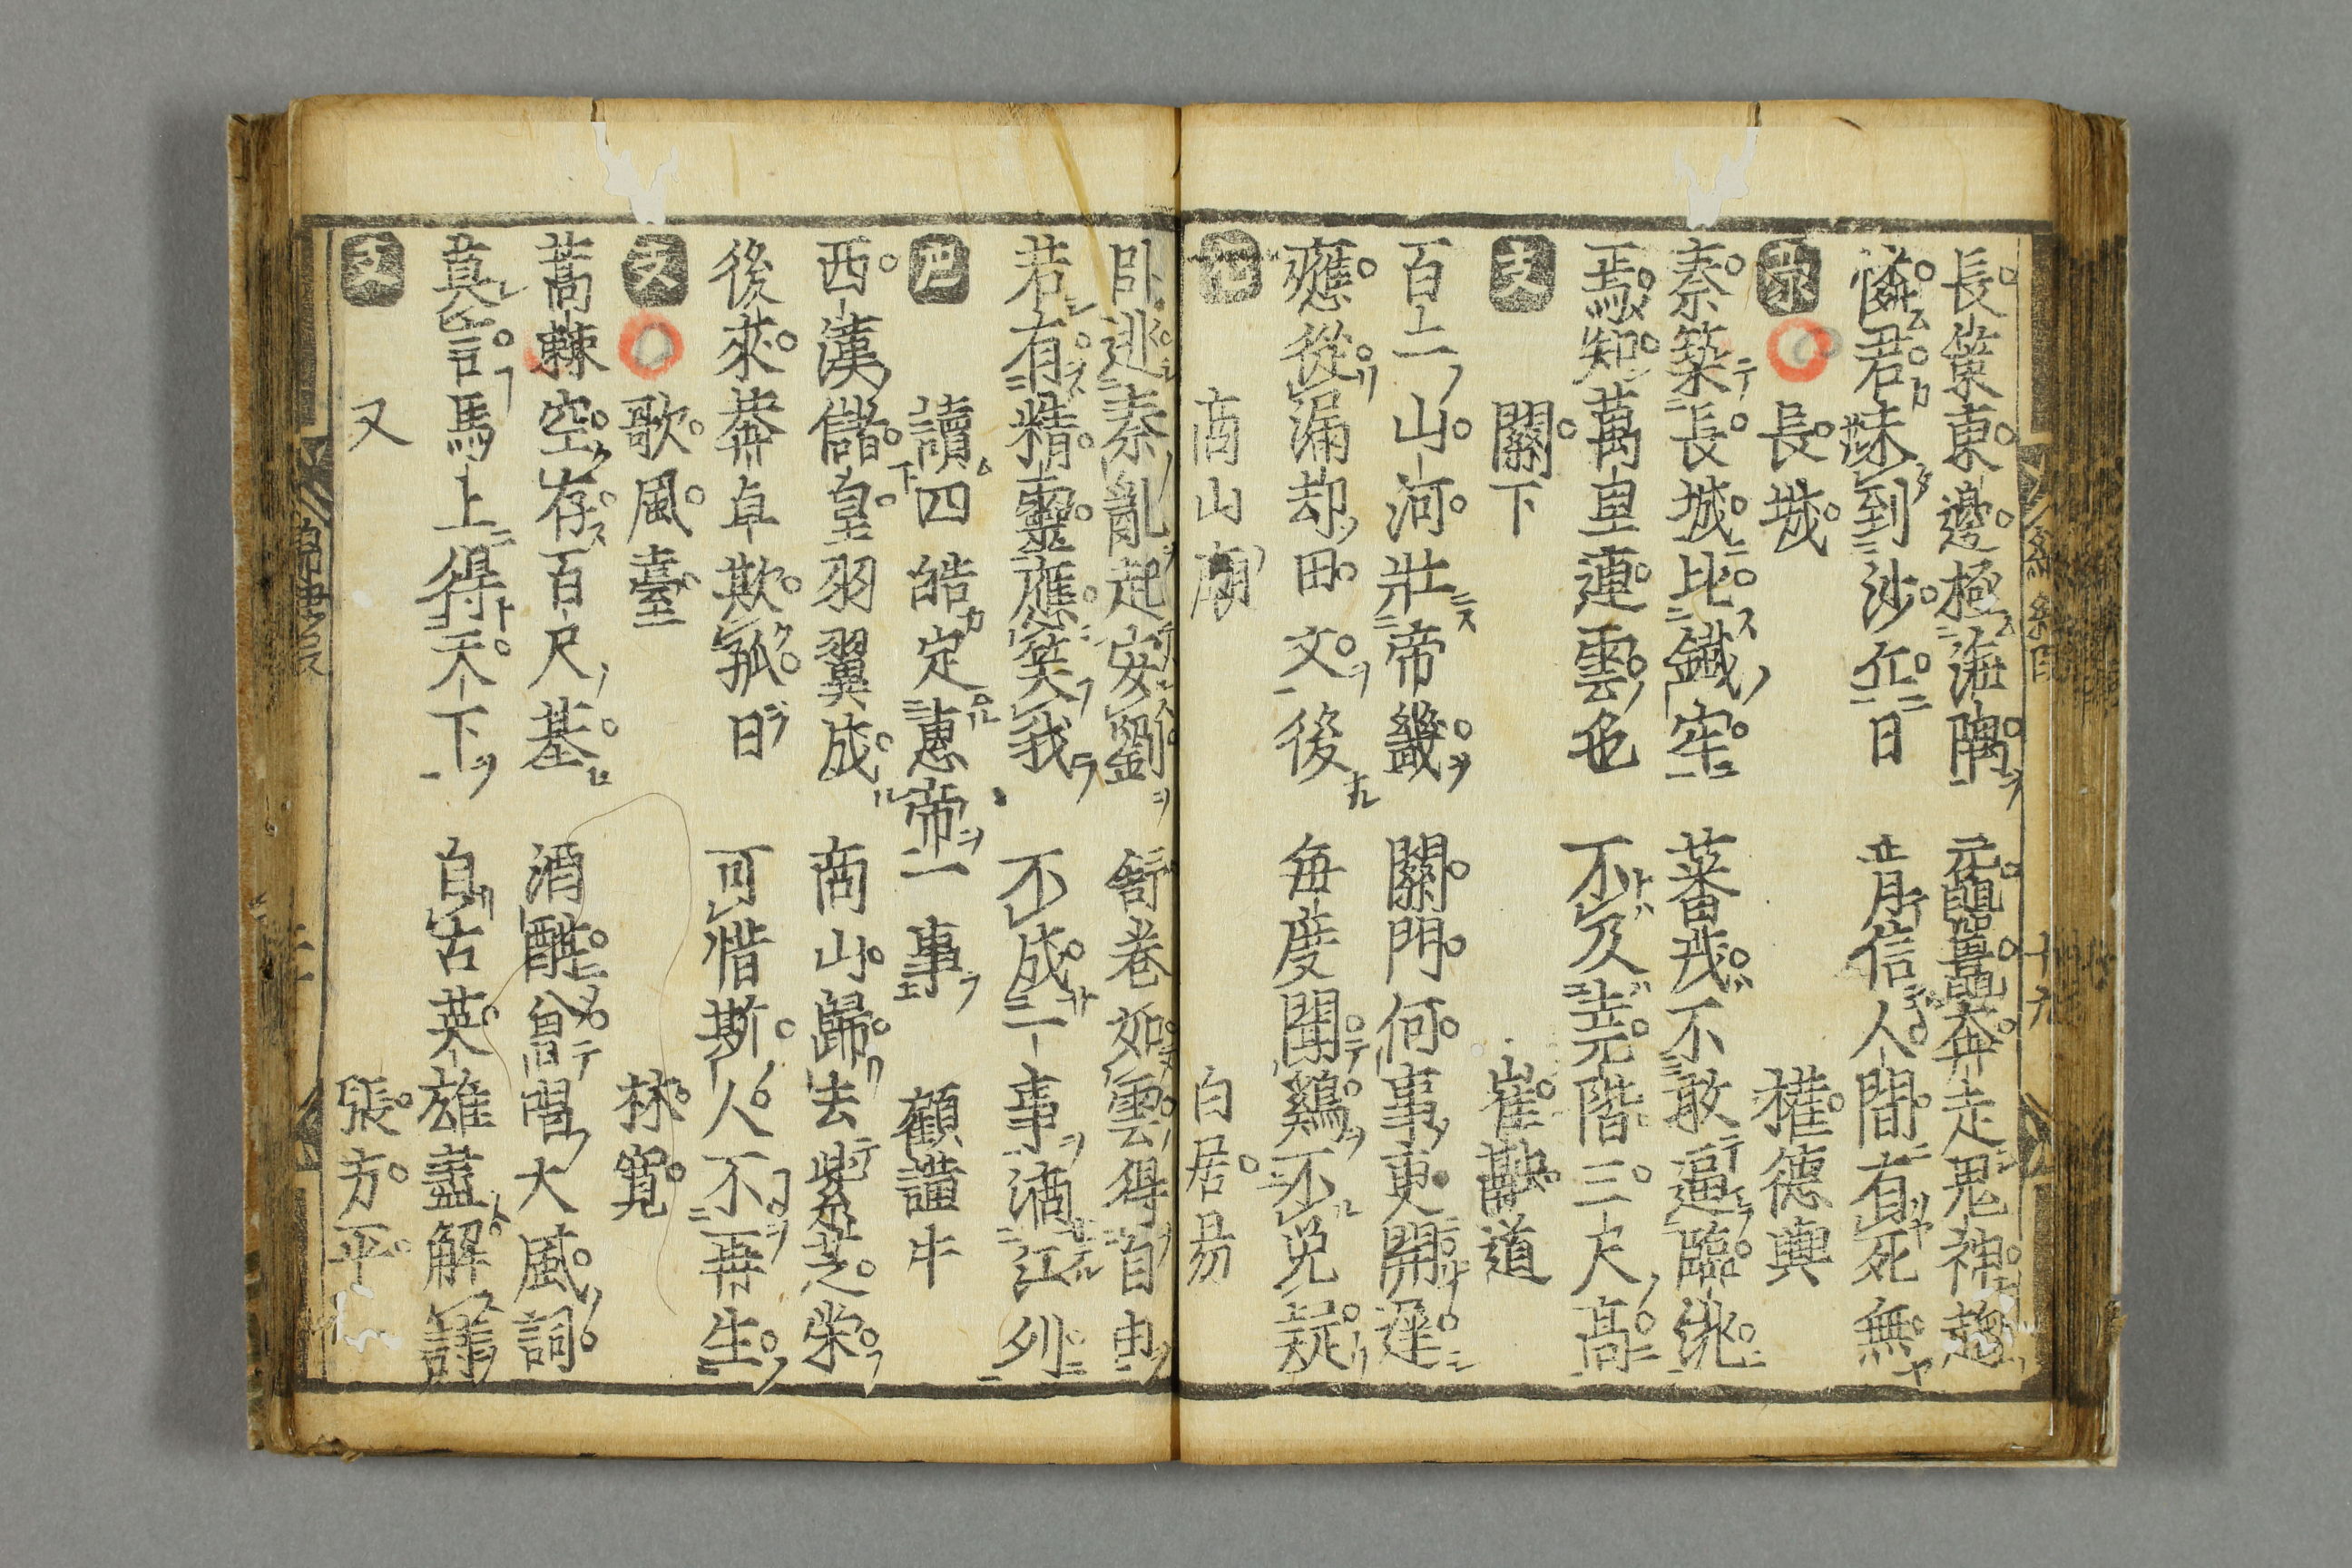 長策東邊極海隅 黿鼉奔走鬼神趨
憐君未到沙丘日 肯信人間有死無
長城 權德輿
秦築長城比鐵牢 蕃戎不敢逼臨洮
焉知萬里連雲色 不及堯階三尺高
支 關下 崔融道
百二山河壯帝畿 關門何事更開遲
應從漏却田文後 每度聞鷄不免疑
商山廟 白居易
卧逃秦亂起安劉 舒卷如雲得自由
若有精靈應笑我 不成一事謫江州
讀四皓定惠帝一事 顧讜牛
西漢儲皇羽翼成 商山歸去紫芝栄
後來莽卓欺孤日 可惜斯人不再生
支 歌風臺 林寬
蒿棘空存百尺基 酒酣曽唱大風詞
莫言馬上得天下 自古英雄盡解詩
支 又 張方平